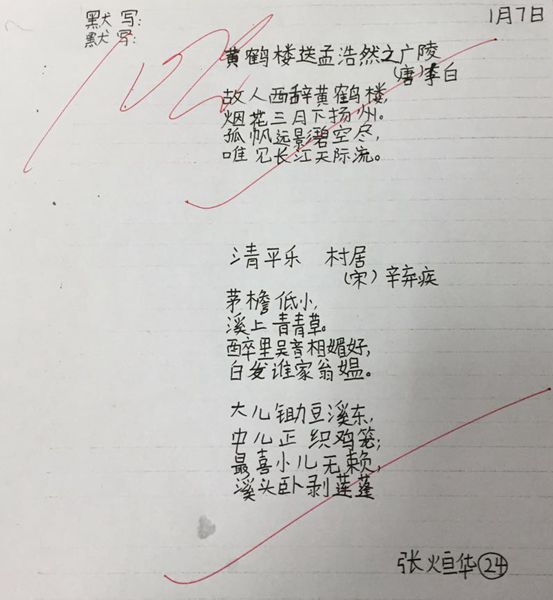 默写:
默写:
1月7日
黄鹤楼送孟浩然之广陵
(唐)李白
故人西辞黄鹤楼,
烟花三月下扬州。
孤帆远影碧空尽,
唯见长江天际流。
清平乐 村居
(宋)辛弃疾
茅檐低小,
溪上青青草。
醉里吴音相媚好,
白发谁家翁媪。
大儿锄豆溪东,
中儿正织鸡笼;
最喜小儿无赖,
溪头卧剥莲蓬
张烜华 24